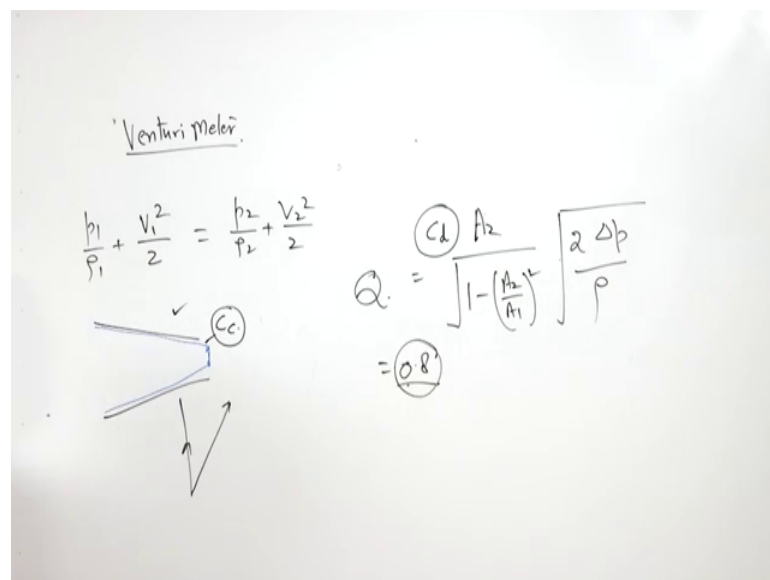 'Venturi Meter.
p1/ρ1 + V1²/2 = p2/ρ2 + V2²/2
Q. = Cd A2 / √(1-(A2/A1)²) √(2 Δp/ρ)
Cc.
= 0.8'